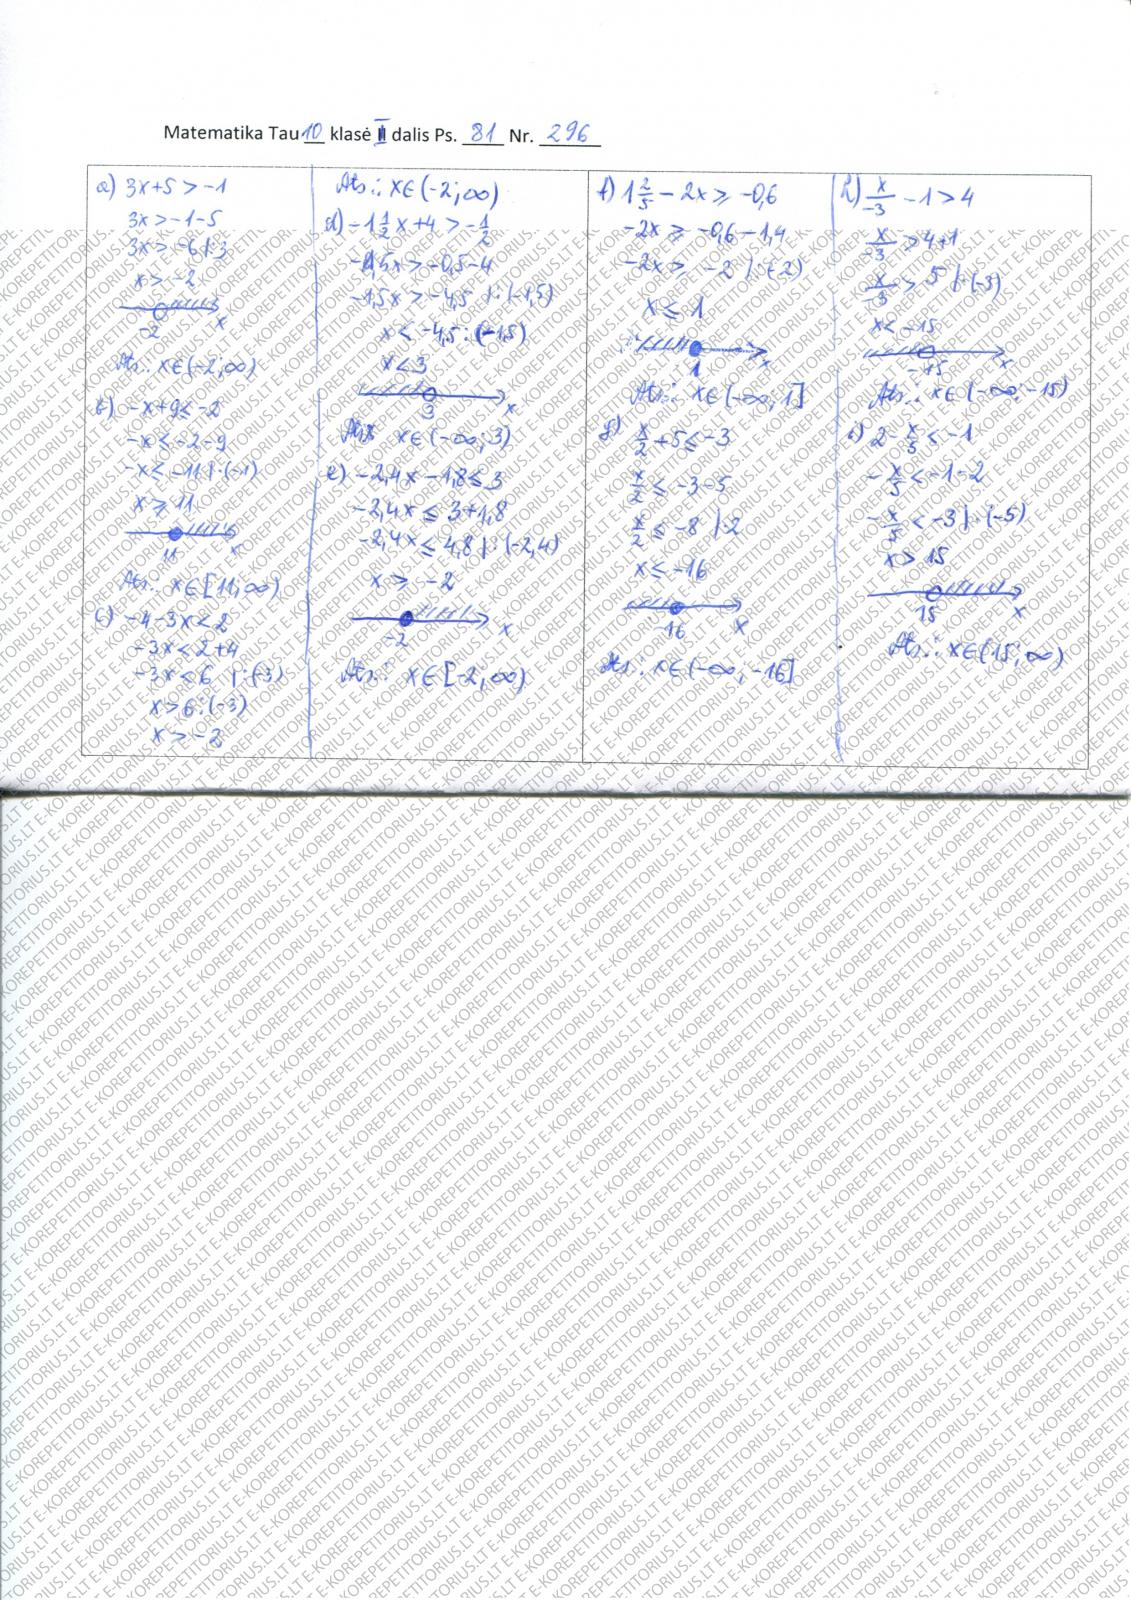 Matematika Tau 10 klasė II dalis Ps. 81 Nr. 296
a) 3x+5 > -1
3x > -1-5
3x > -6 |:3
x > -2
-2 x
Ats.: x∈(-2;∞)
b) -x+9 ≤ -2
-x ≤ -2-9
-x ≤ -11 |·(-1)
x ≥ 11
11 x
Ats.: x∈[11;∞)
c) -4-3x < 2
-3x < 2+4
-3x < 6 |:(-3)
x > 6:(-3)
x > -2
Ats.: x∈(-2;∞)
d) -1 1/2 x+4 > -1/2
-1,5x > -0,5-4
-1,5x > -4,5 |:(-1,5)
x < -4,5:(-1,5)
x < 3
3 x
Ats. x∈(-∞;3)
e) -2,4x-1,8 ≤ 3
-2,4x ≤ 3+1,8
-2,4x ≤ 4,8 |:(-2,4)
x ≥ -2
-2 x
Ats.: x∈[-2;∞)
f) 1 2/5 - 2x ≥ -0,6
-2x ≥ -0,6-1,4
-2x ≥ -2 |:(-2)
x ≤ 1
1 x
Ats.: x∈(-∞;1]
g) x/2 +5 ≤ -3
x/2 ≤ -3-5
x/2 ≤ -8 |·2
x ≤ -16
-16 x
Ats.: x∈(-∞;-16]
h) x/-3 -1 > 4
x/-3 > 4+1
x/-3 > 5 |·(-3)
x < -15
-15 x
Ats.: x∈(-∞;-15)
i) 2- x/5 < -1
-x/5 < -1-2
-x/5 < -3 |·(-5)
x > 15
15 x
Ats.: x∈(15;∞)
E-KOREPETITORIUS.LT